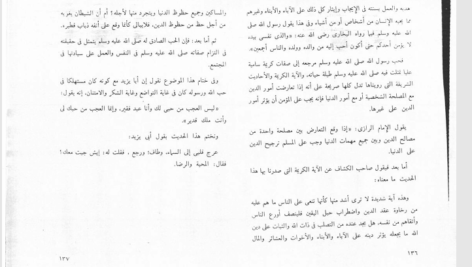 هذه والعمل بسنته في الإيجاب وإيثار كل ذلك على الآباء والأبناء وغيرهم
مما يحبه الإنسان من أشخاص أو من أشياء وفي هذا يقول رسول الله صلى
الله عليه وسلم فيما رواه البخاري رضى الله عنه: «والذى نفسى بيده
لا يؤمن أحدكم حتى أكون أحب إليه من والده وولده والناس أجمعين».
فحب رسول الله صلى الله عليه وسلم مرجعه إلى صفات كريمة سامية
عليا تمثلت فيه صلى الله عليه وسلم طيلة حياته، والآية الكريمة والأحاديث
الشريفة التى رويناها تدل كلها صريحة على أنه إذا تعارضت أمور الدين
مع المصلحة الشخصية أو مع أمور الدنيا فإنه يجب على المؤمن أن يؤثر أمور
الدين على غيرها.
يقول الإمام الرازى: «إذا وقع التعارض بين مصلحة واحدة من
مصالح الدين وبين جميع مهمات الدنيا وجب على المسلم ترجيح الدين
على الدنيا.
أما بعد فيقول صاحب الكشاف عن الآية الكريمة التى صدرنا بها هذا
الحديث ما معناه:
وهذه آية شديدة لا ترى أشد منها كأنها تنعى على الناس ما هم عليه
من رخاوة عقد الدين واضطراب حبل اليقين فلينصف أورع الناس
وأتقاهم من نفسه، هل يجد عنده من التصلب في ذات الله والثبات على دين
الله ما يجعله يؤثر دينه على الآباء والأبناء والأخوات والعشائر والمال
١٣٦
والمساكن وجميع حظوظ الدنيا ويتجرد منها لأجله؟ أم أن الشيطان يغويه
من أجل حظ من حظوظ الدين، فلايبالى كأنما وقع على أنفه ذباب فطيره.
ثم أما بعد: فإن الحب الصادق له صلى الله عليه وسلم يتمثل في حقيقته
في التزام صفاته صلى الله عليه وسلم في النفس والعمل على سيادتها في
المجتمع.
وفى ختام هذا الموضوع نقول إن أبا يزيد مع كونه كان مستهلكا في
حب الله ورسوله كان في غاية التواضع وغاية الشكر والامتنان، إنه يقول:
«ليس العجب من حبى لك وأنا عبد فقير، وإنما العجب من حبك لى
وأنت ملك قدير».
ونختم هذا الحديث بقول أبى يزيد:
عرج قلبى إلى السماء، وطاف؛ ورجع، فقلت له: إيش جبت معك؟
فقال: المحبة والرضا.
١٣٧